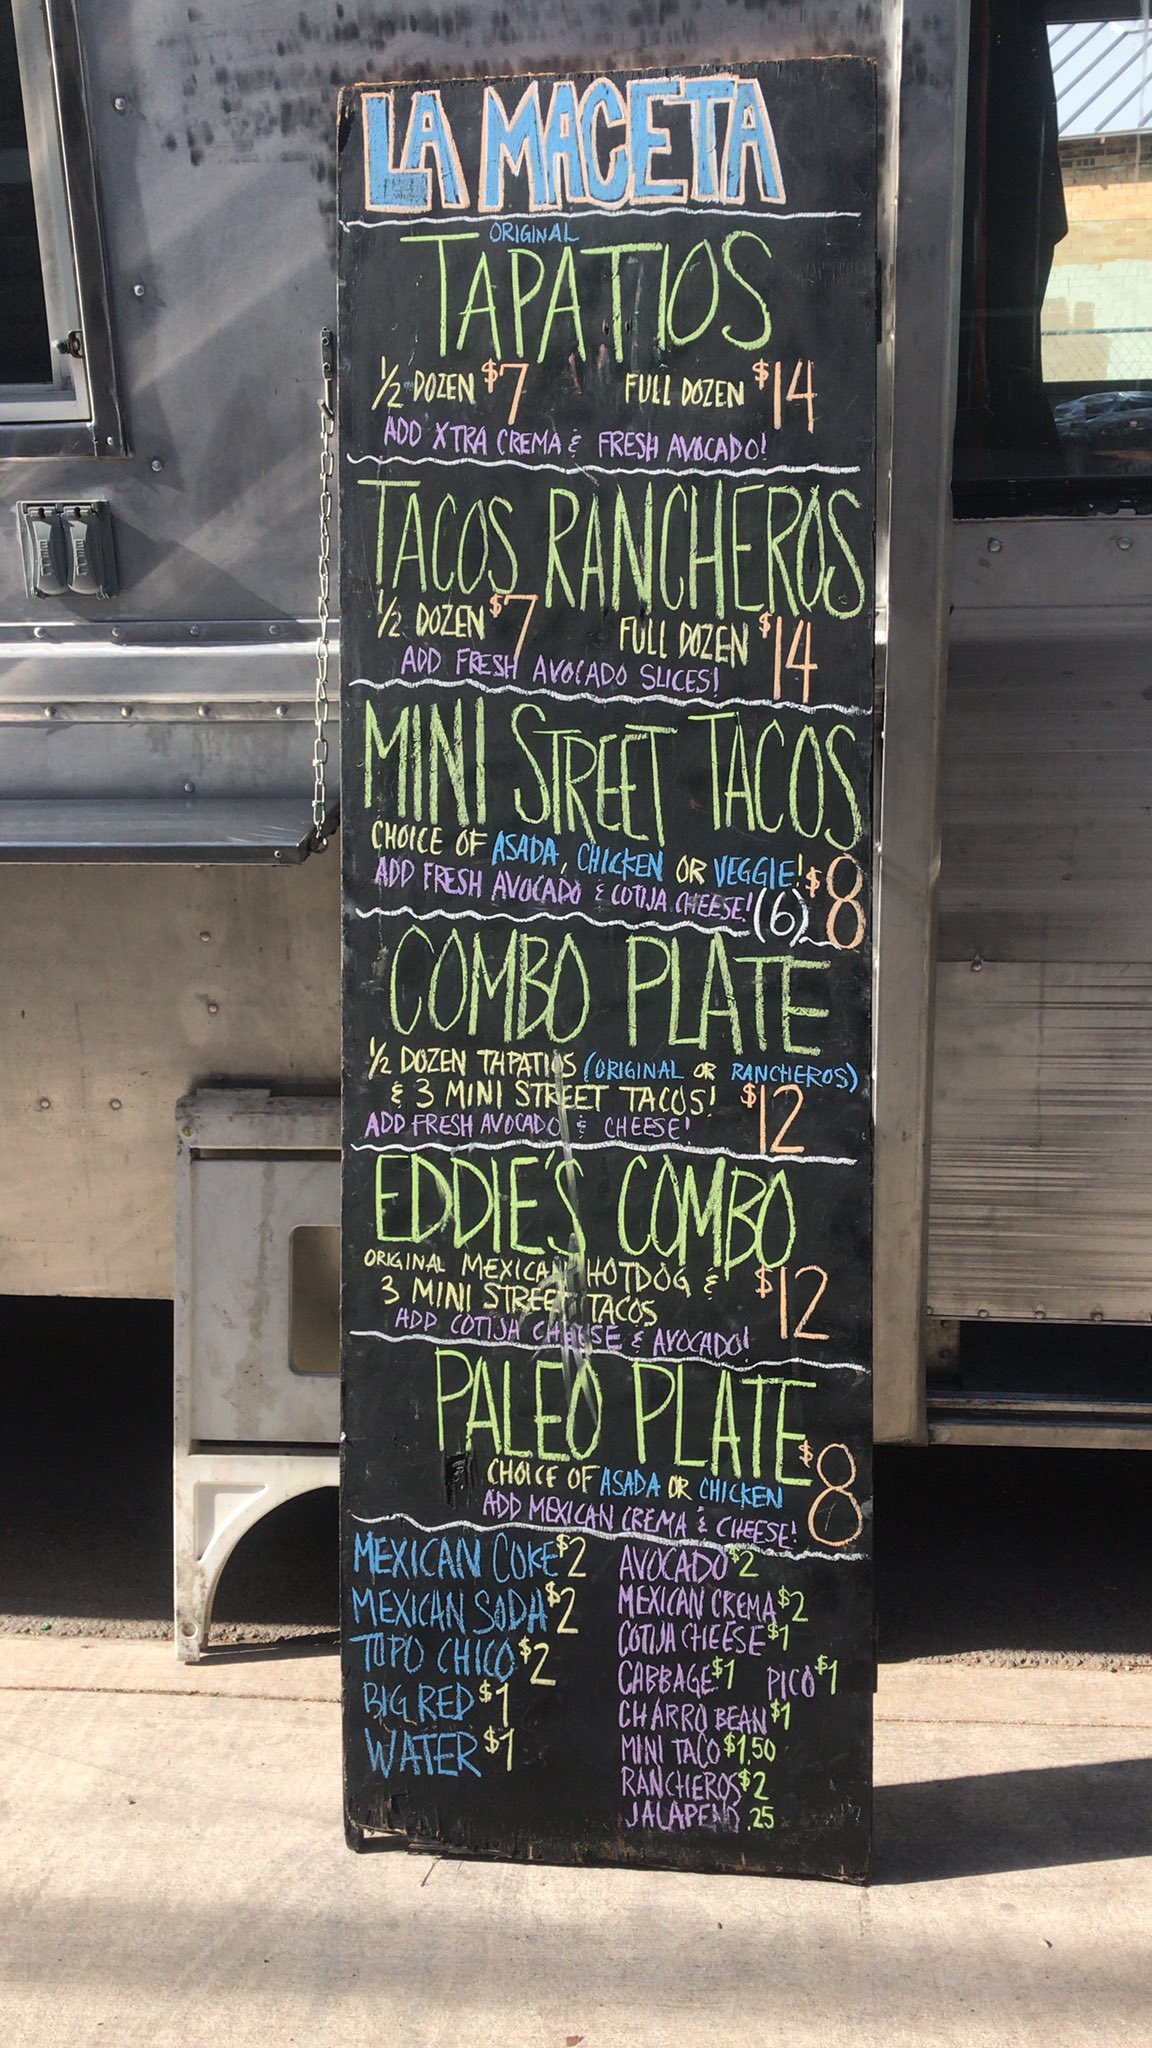 LA MACETA
ORIGINAL
TAPATIOS
1/2 DOZEN $7 FULL DOZEN $14
ADD XTRA CREMA & FRESH AVOCADO!
TACOS RANCHEROS
1/2 DOZEN $7 FULL DOZEN $14
ADD FRESH AVOCADO SLICES!
MINI STREET TACOS
CHOICE OF ASADA, CHICKEN OR VEGGIE! $8
ADD FRESH AVOCADO & COTIJA CHEESE! (6)
COMBO PLATE
1/2 DOZEN TAPATIOS (ORIGINAL OR RANCHEROS)
& 3 MINI STREET TACOS! $12
ADD FRESH AVOCADO & CHEESE!
EDDIE'S COMBO
ORIGINAL MEXICAN HOTDOG & $12
3 MINI STREET TACOS
ADD COTIJA CHEESE & AVOCADO!
PALEO PLATE $8
CHOICE OF ASADA OR CHICKEN
ADD MEXICAN CREMA & CHEESE!
MEXICAN COKE $2
MEXICAN SODA $2
TOPO CHICO $2
BIG RED $1
WATER $1
AVOCADO $2
MEXICAN CREMA $2
COTIJA CHEESE $1
CABBAGE $1 PICO $1
CHARRO BEAN $1
MINI TACO $1.50
RANCHEROS $2
JALAPENO .25